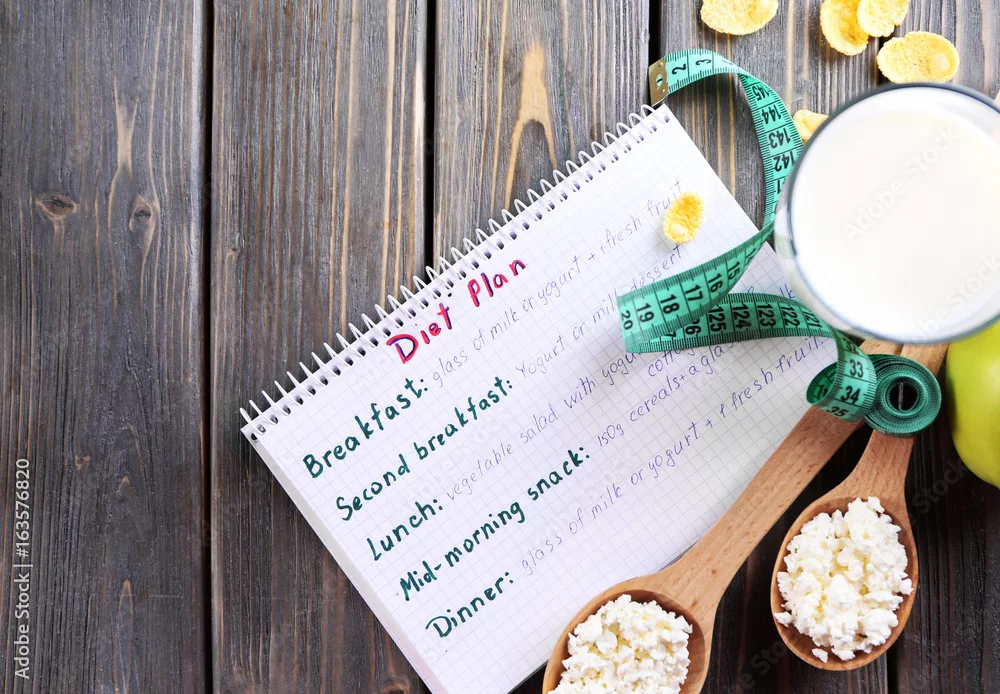 Diet Plan
Breakfast: glass of milk or yogurt + 1 fresh fruit
Second breakfast: Yogurt or milk dessert
Lunch: vegetable salad with yogurt
cottage
Mid-morning snack: 150g cereals + a glass milk
Dinner: glass of milk or yogurt + 1 fresh fruit
2 3
145 144 143 142
15 16 17 18 19 20
125 124 123 122
33 34
Adobe Stock | #163576820